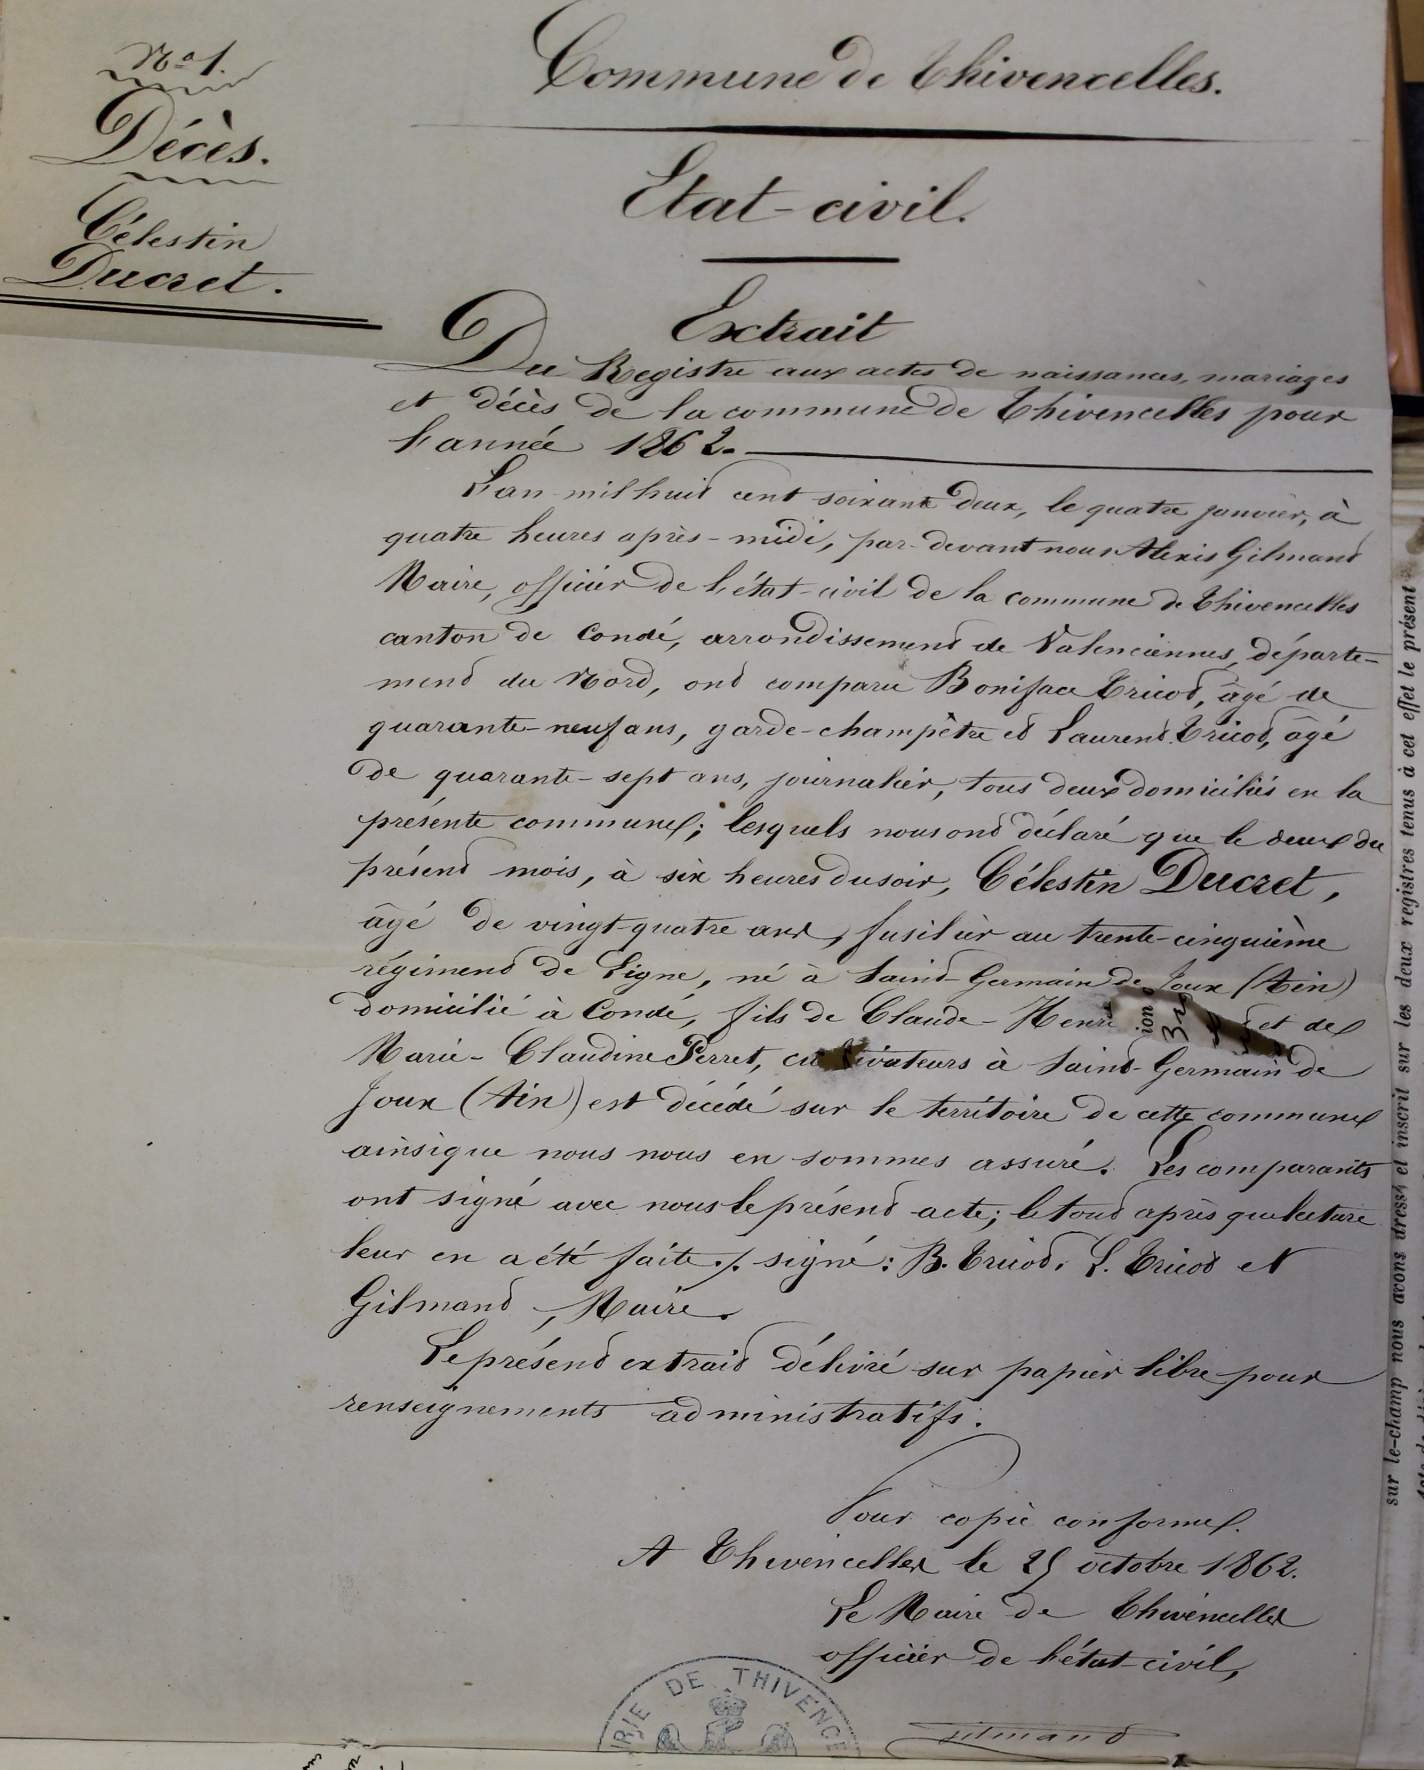 Nº 1.
Décès.
Célestin
Ducret.
Commune de Thivencelles.
Etat-civil.
Extrait
Du Registre aux actes de naissances, mariages
et décès de la commune de Thivencelles pour
l'année 1862.
L'an mil huit cent soixante deux, le quatre janvier, à
quatre heures après-midi, par-devant nous Alexis Gilmand
Maire, officier de l'état-civil de la commune de Thivencelles
canton de Condé, arrondissement de Valenciennes, départe-
ment du Nord, ont comparu Boniface Tricot, âgé de
quarante-neuf ans, garde-champêtre et Laurent Tricot, âgé
de quarante-sept ans, journalier, tous deux domiciliés en la
présente commune; lesquels nous ont déclaré que le deux du
présent mois, à six heures du soir, Célestin Ducret,
âgé de vingt-quatre ans, fusilier au trente-cinquième
régiment de Ligne, né à Saint-Germain de Joux (Ain)
domicilié à Condé, fils de Claude-Henri et de
Marie-Claudine Perret, cultivateurs à Saint-Germain de
Joux (Ain) est décédé sur le territoire de cette commune
ainsi que nous nous en sommes assuré. Les comparants
ont signé avec nous le présent acte; le tout après que lecture
leur en a été faite ./. signé: B. Tricot. L. Tricot et
Gilmand, Maire.
Le présent extrait délivré sur papier libre pour
renseignements administratifs.
Pour copie conforme.
A Thivencelles le 25 octobre 1862.
Le Maire de Thivencelles
officier de l'état-civil,
Gilmand
RIE DE THIVENCE
sur le-champ nous avons dressé et inscrit sur les deux registres tenus à cet effet le présent
ion